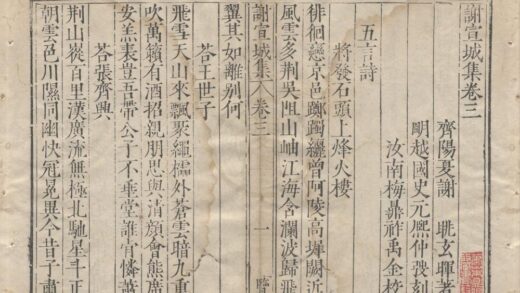 謝宣城集卷三
齊陽夏謝 朓玄暉著
明越國史元熈仲弢刻
汝南梅鼎祚禹金校
五言詩
將發石頭上烽火樓
徘徊戀京邑躑躅曾阿陵高墀闕近
風雲多荆吳阻山岫江海含瀾波歸飛
謝宣城集 卷三 一
翼其如離别何
荅王世子
飛雪天山來飄聚繩欞外蒼雲暗九重
吹萬籟有酒招親朋思與清顔會熊席
安羔裘豈吾帶公子不垂堂誰肯憐蕭
荅張齊興
荆山嵸百里漢廣流無極北馳星斗正
朝雲邑川隰同幽快冠冕異今昔子肅